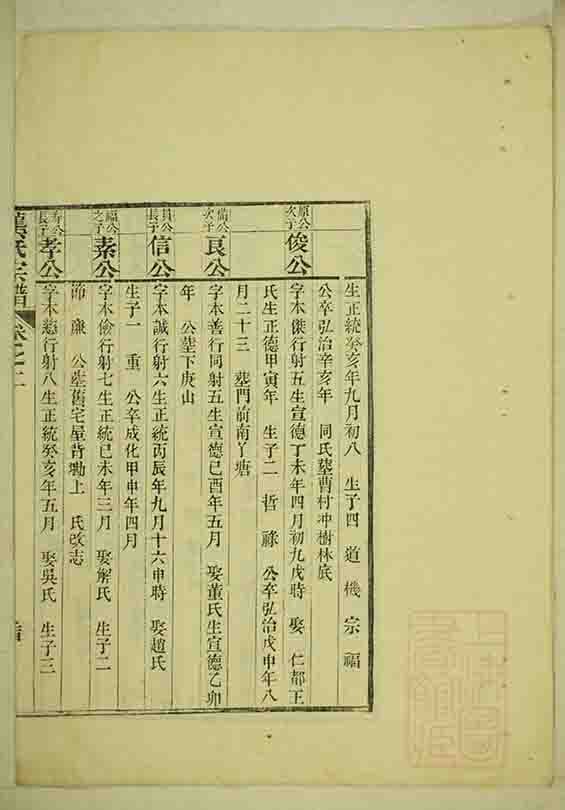 生正統癸亥年九月初八 生子四 道 機 宗 福
公卒弘治辛亥年 同氏墓曹村冲樹林底
原公次子
俊公 字本傑行射五生宣德丁未年四月初九戌時 娶 仁都王
氏生正德甲寅年 生子二 哲 祿 公卒弘治戊申年八
月二十三 墓門前南丫塘
次子
良公 字本善行同射五生宣德己酉年五月 娶董氏生宣德乙卯
年 公墓下庚山
員公長子
信公 字本誠行射六生正統丙辰年九月十六申時 娶趙氏
生子一 重 公卒成化甲申年四月
福公之子
素公 字本儉行射七生正統己未年三月 娶解氏 生子二
節 廉 公墓舊宅屋背坳上 氏改志
壽公長子
孝公 字本 行射八生正統癸亥年五月 娶吳氏 生子三
氏宗譜 卷之二